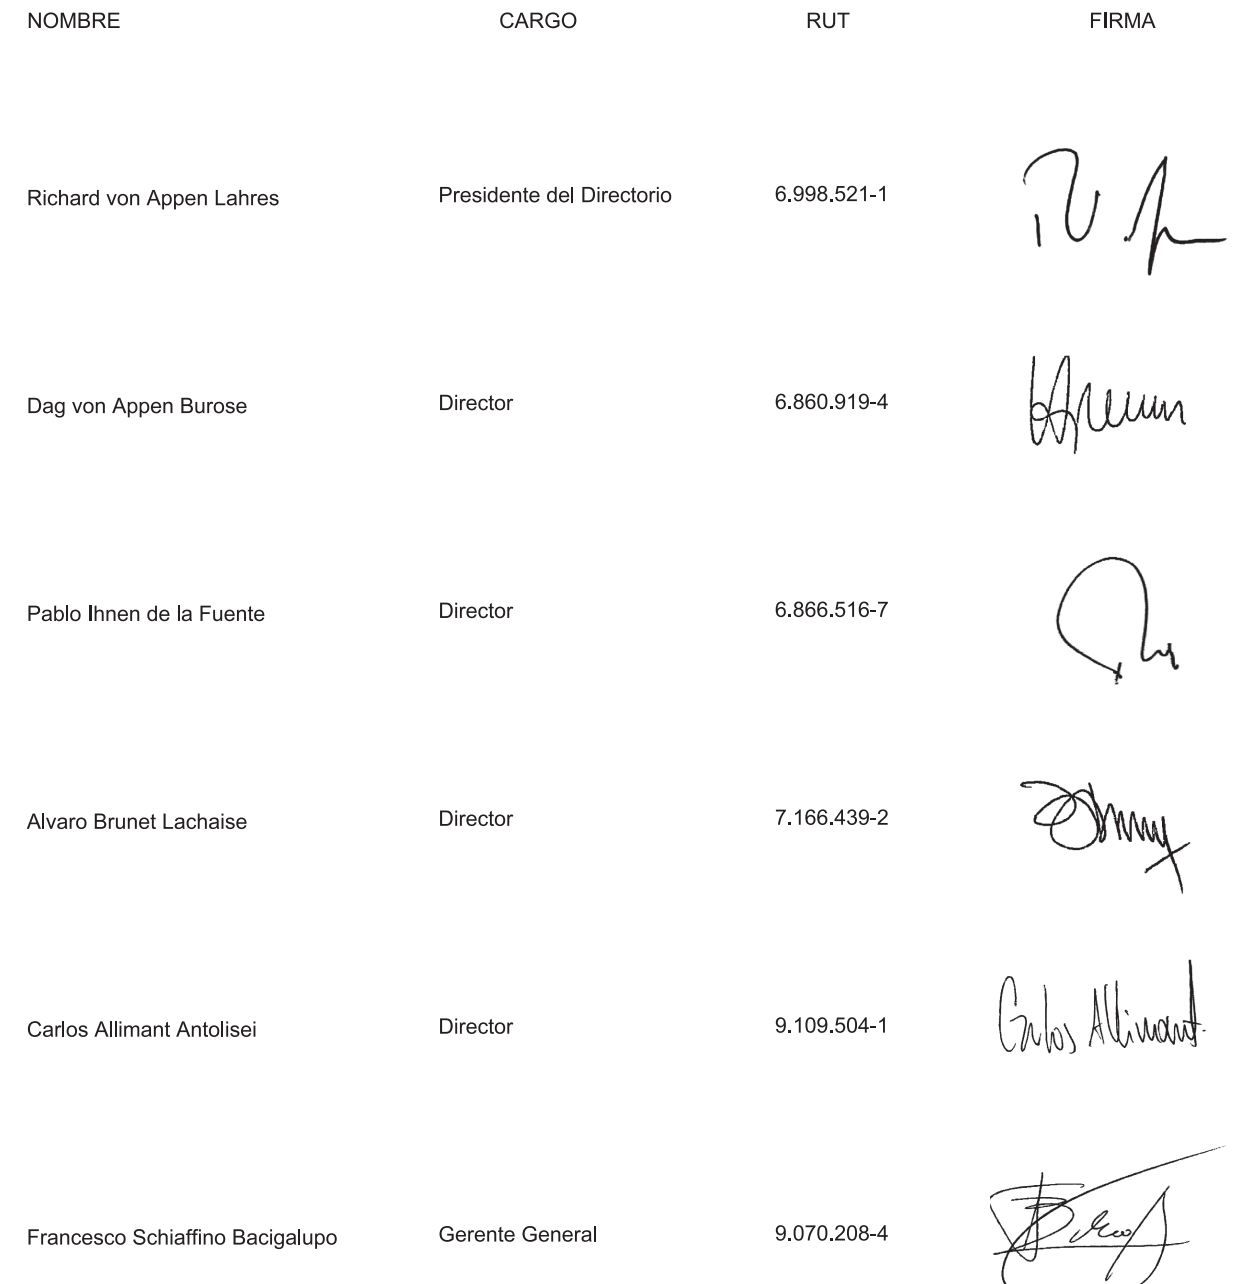 NOMBRE CARGO RUT FIRMA
Richard von Appen Lahres Presidente del Directorio 6.998.521-1
Dag von Appen Burose Director 6.860.919-4
Pablo Ihnen de la Fuente Director 6.866.516-7
Alvaro Brunet Lachaise Director 7.166.439-2
Carlos Allimant Antolisei Director 9.109.504-1 Carlos Allimant
Francesco Schiaffino Bacigalupo Gerente General 9.070.208-4